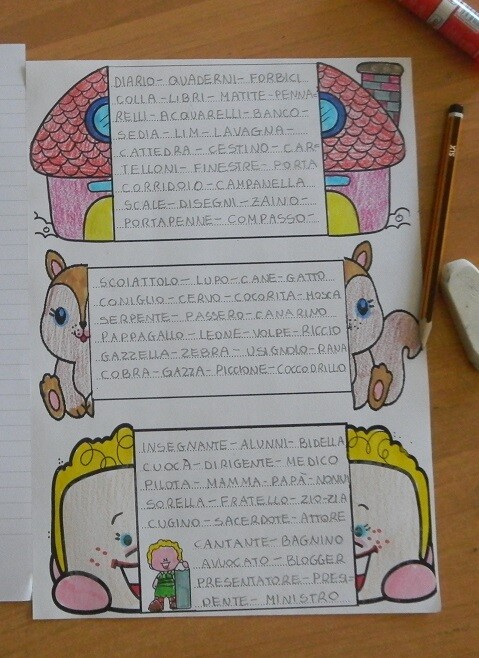 DIARIO- QUADERNI- FORBICI
COLLA- LIBRI- MATITE- PENNA=
RELLI- ACQUARELLI- BANCO-
SEDIA- LIM- LAVAGNA-
CATTEDRA- CESTINO- CAR=
TELLONI- FINESTRE- PORTA
CORRIDOIO- CAMPANELLA
SCALE- DISEGNI- ZAINO-
PORTAPENNE- COMPASSO-
SCOIATTOLO- LUPO- CANE- GATTO
CONIGLIO- CERVO- COCORITA- MOSCA
SERPENTE- PASSERO- CANARINO
PAPPAGALLO- LEONE- VOLPE- RICCIO
GAZZELLA- ZEBRA- USIGNOLO- RANA
COBRA- GAZZA- PICCIONE- COCCODRILLO
INSEGNANTE- ALUNNI- BIDELLA
CUOCA- DIRIGENTE- MEDICO
PILOTA- MAMMA- PAPÀ- NONNI
SORELLA- FRATELLO- ZIO-ZIA
CUGINO- SACERDOTE- ATTORE
CANTANTE- BAGNINO
AVVOCATO- BLOGGER
PRESENTATORE- PRESI=
DENTE- MINISTRO